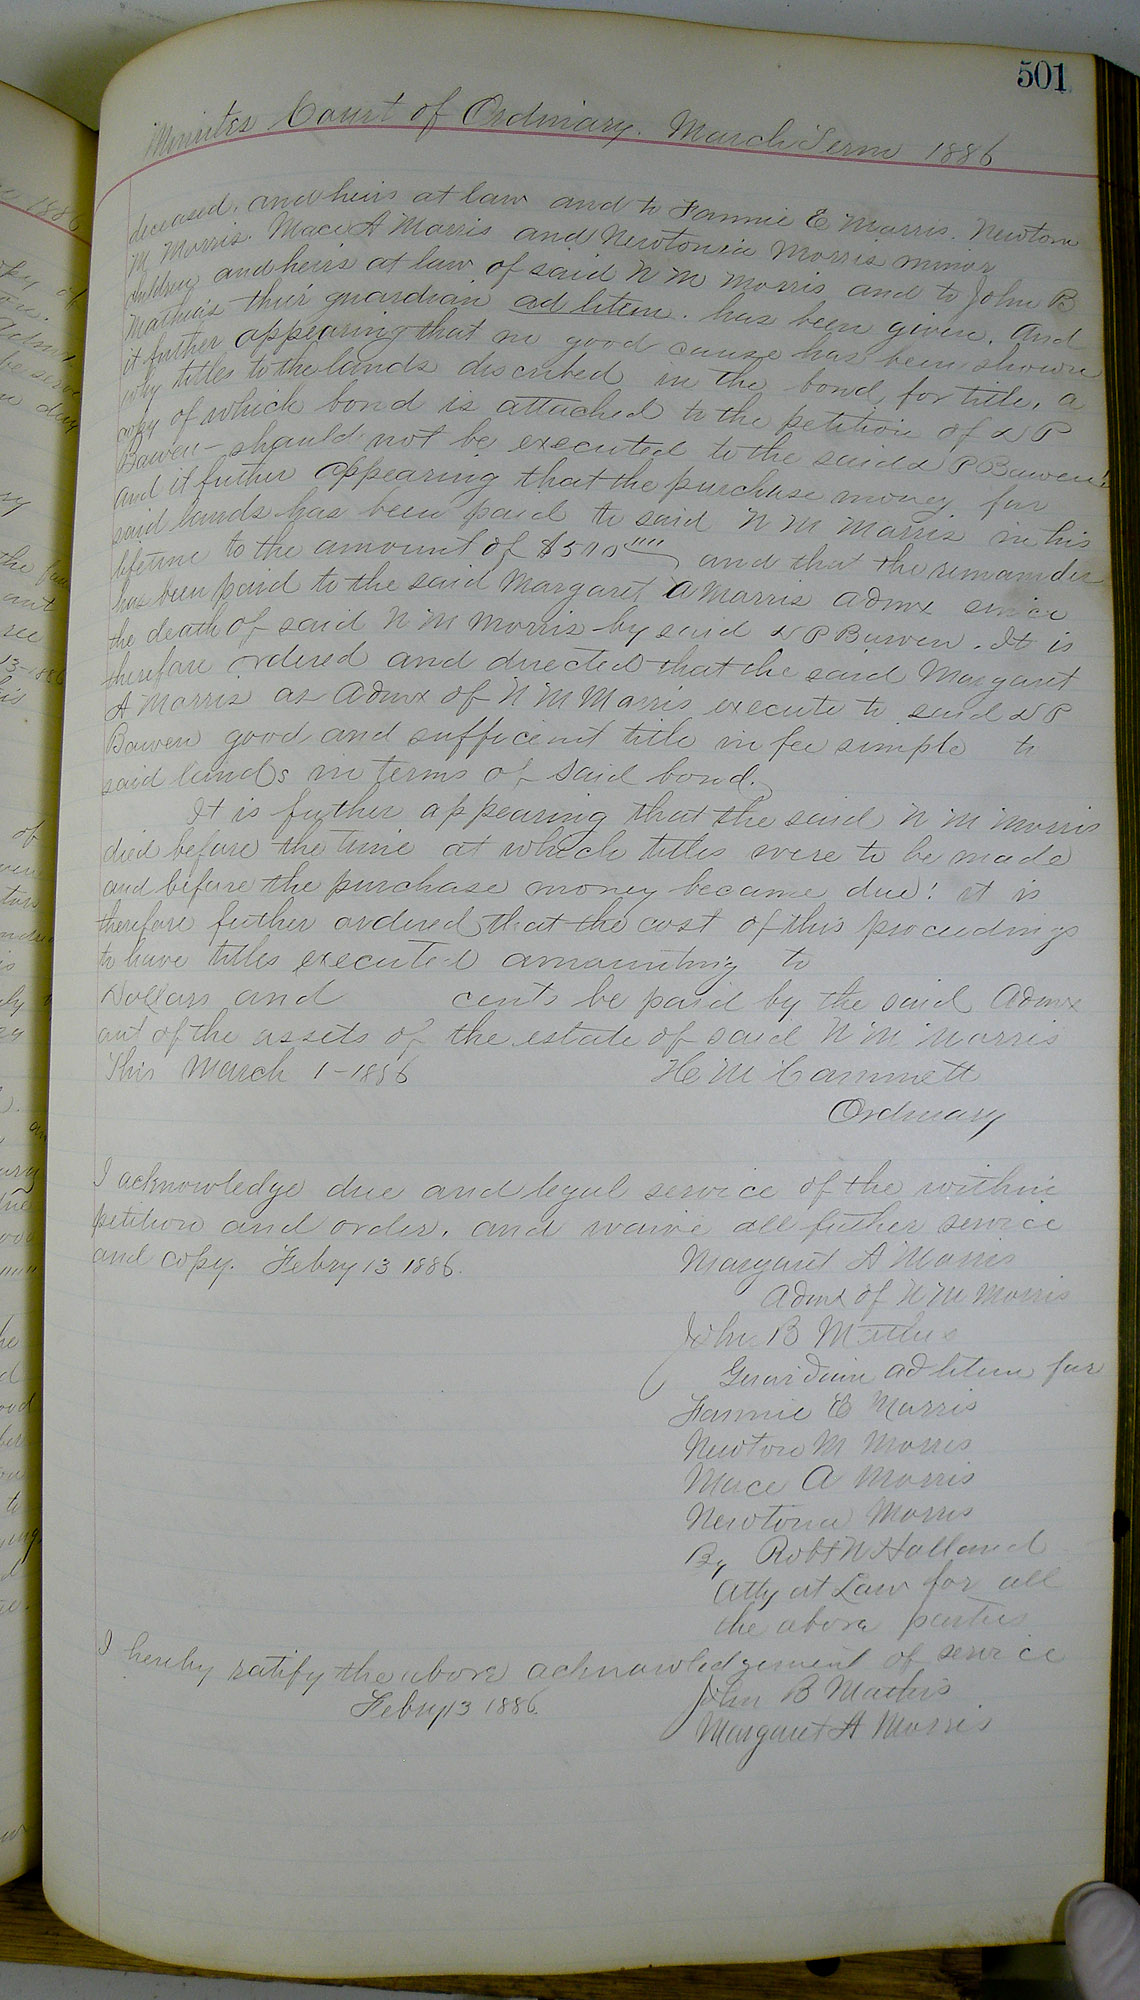 501
Minutes Court of Ordinary. March Term 1886
deceased, and heirs at law and to Fannie E Morris. Newton
M Morris. Mace A Morris and Newtonia Morris minor
children and heirs at law of said N M Morris and to John B
Mathis their guardian ad litem. has been given. And
it futher appearing that no good cause has been shown
why titles to the lands discribed in the bond for title, a
copy of which bond is attached to the petition of P
Bowen - should not be executed to the said P Bowen:
and it futher appearing that the purchase money for
said lands has been paid to said N M Morris in his
lifetime to the amount of and that the remainder
has been paid to the said Margaret A Morris Admx since
the death of said N M Morris by said P Bowen. It is
therefore ordered and directed that the said Margaret
A Morris as Admx of N M Morris execute to said P
Bowen good and sufficient title in fee simple to
said lands in terms of said bond.
It is futher appearing that the said N M Morris
died before the time at which titles were to be made
and before the purchase money became due: it is
therefore futher ordered that the cost of this proceedings
to have titles executed amounting to
Dollars and cents be paid by the said Admx
out of the assets of the estate of said N M Morris
This March 1-1886 H M Cammett
Ordinary
I acknowledge due and legal service of the within
petition and order. and waive all futher service
and copy. Febry 13 1886. Margaret A Morris
Admx of N M Morris
John B Mathis
Guardian ad litem for
Fannie E Morris
Newton M Morris
Mace A Morris
Newtonia Morris
By Robt N Holland
Atty at Law for all
the above parties
I hereby ratify the above acknowledgement of service
Febry 13 1886. John B Mathis
Margaret A Morris